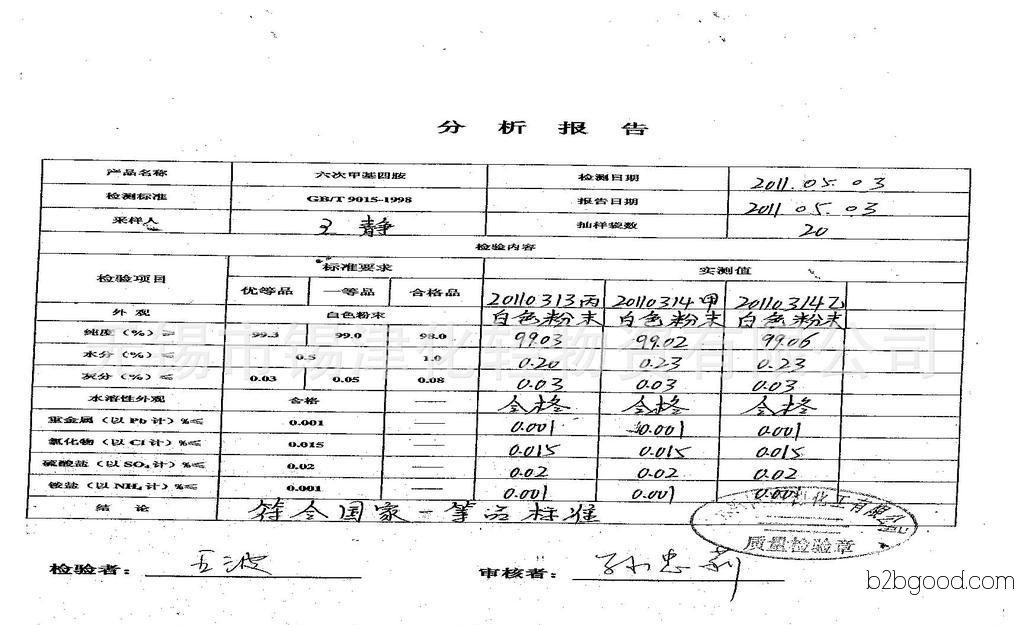 分析报告
产品名称 六次甲基四胺 检测日期 2011.05.03
检测标准 GB/T 9015-1998 报告日期 2011 05.03
采样人 王静 抽样袋数 20
检验内容
检验项目 标准要求 实测值
优等品 一等品 合格品 20110313丙 20110314甲 20110314乙
外观 白色粉末 白色粉末 白色粉末 白色粉末
纯度（%）≥ 99.3 99.0 98.0 99.03 99.02 99.06
水分（%）≤ 0.5 1.0 0.20 0.23 0.23
灰分（%）≤ 0.03 0.05 0.08 0.03 0.03 0.03
水溶性外观 合格 —— 合格 合格 合格
重金属（以Pb计）%≤ 0.001 —— 0.001 0.001 0.001
氯化物（以Cl计）%≤ 0.015 —— 0.015 0.015 0.015
硫酸盐（以SO₄计）%≤ 0.02 —— 0.02 0.02 0.02
铵盐（以NH₄计）%≤ 0.001 —— 0.001 0.001 0.001
结论 符合国家一等品标准
无锡市锡津化轻物资有限公司
化工有限公司
质量检验章
检验者： 王波 审核者： 孙忠莉
b2bgood.com